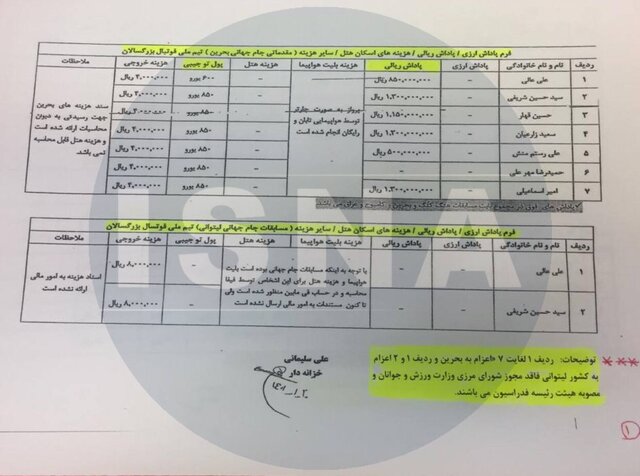 فرم پاداش ارزی / پاداش ریالی / هزینه های اسکان هتل / سایر هزینه ( مقدماتی جام جهانی بحرین ) تیم ملی فوتبال بزرگسالان
ردیف نام و نام خانوادگی پاداش ارزی پاداش ریالی هزینه بلیت هواپیما هزینه هتل پول تو جیبی هزینه خروجی ملاحظات
۱ علی عالی – ۸۵۰,۰۰۰,۰۰۰ ریال – ۶۰۰ یورو ۴,۰۰۰,۰۰۰ ریال
۲ سید حسین شریفی – ۱,۳۰۰,۰۰۰,۰۰۰ ریال – ۸۵۰ یورو ۴,۰۰۰,۰۰۰ ریال
۳ حسین قهار – ۱,۱۵۰,۰۰۰,۰۰۰ ریال – ۸۵۰ یورو ۴,۰۰۰,۰۰۰ ریال
۴ سعید زارعیان – ۱,۳۰۰,۰۰۰,۰۰۰ ریال – ۸۵۰ یورو ۴,۰۰۰,۰۰۰ ریال
۵ علی رستم منش – ۵۰۰,۰۰۰,۰۰۰ ریال – ۸۵۰ یورو ۴,۰۰۰,۰۰۰ ریال
۶ حمیدرضا مهر علی – – – ۸۵۰ یورو ۴,۰۰۰,۰۰۰ ریال
۷ امیر اسماعیلی – ۱,۳۰۰,۰۰۰,۰۰۰ ریال – ۸۵۰ یورو ۴,۰۰۰,۰۰۰ ریال
پرواز به صورت چارتر
توسط هواپیمایی تابان و
رایگان انجام شده است
سند هزینه های بحرین
جهت رسیدگی به دیوان
محاسبات ارائه شده است
و هزینه هتل قابل محاسبه
نمی باشد.
پاداش های فوق در مجموع بابت مسابقات هنگ کنگ و بحرین و کامبوج و عراق می باشد
فرم پاداش ارزی / پاداش ریالی / هزینه های اسکان هتل / سایر هزینه ( مسابقات جام جهانی لیتوانی) تیم ملی فوتسال بزرگسالان
ردیف نام و نام خانوادگی پاداش ارزی پاداش ریالی هزینه بلیت هواپیما هزینه هتل پول تو جیبی هزینه خروجی ملاحظات
۱ علی عالی – – – ۸,۰۰۰,۰۰۰ ریال
۲ سید حسین شریفی – – – ۸,۰۰۰,۰۰۰ ریال
با توجه به اینکه مسابقات جام جهانی بوده است بلیت
هواپیما و هزینه هتل برای این اشخاص توسط فیفا
محاسبه و در حساب فی مابین منظور شده است ولی
تا کنون مستندات به امور مالی ارسال نشده است
اسناد هزینه به امور مالی
ارائه نشده است
توضیحات: ردیف ۱ لغایت ۷ اعزام به بحرین و ردیف ۱ و ۲ اعزام
به کشور لیتوانی فاقد مجوز شورای مرزی وزارت ورزش و جوانان و
مصوبه هیئت رئیسه فدراسیون می باشند.
علی سلیمانی
خزانه دار
ISNA
۱